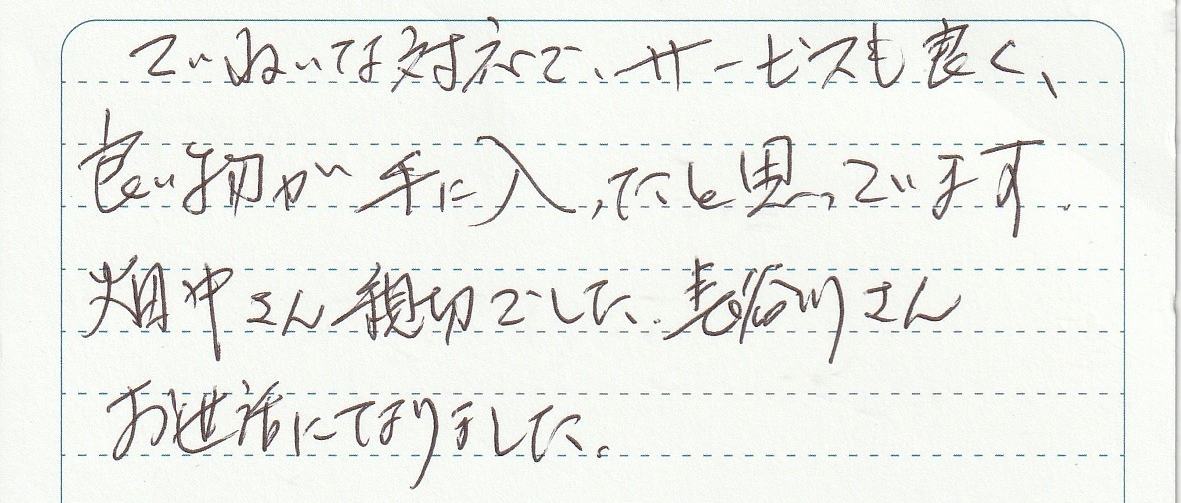 ていねいな対応で、サービスも良く、
良い物が手に入ったと思っています。
畑中さん親切でした。長谷川さん
お世話になりました。